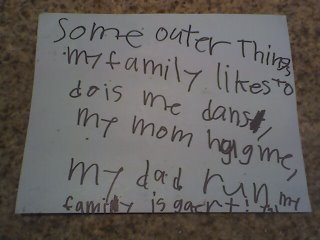 some outer things
my family likes to
do is me dans,
my mom hgg me,
my dad run my
family is gaert!